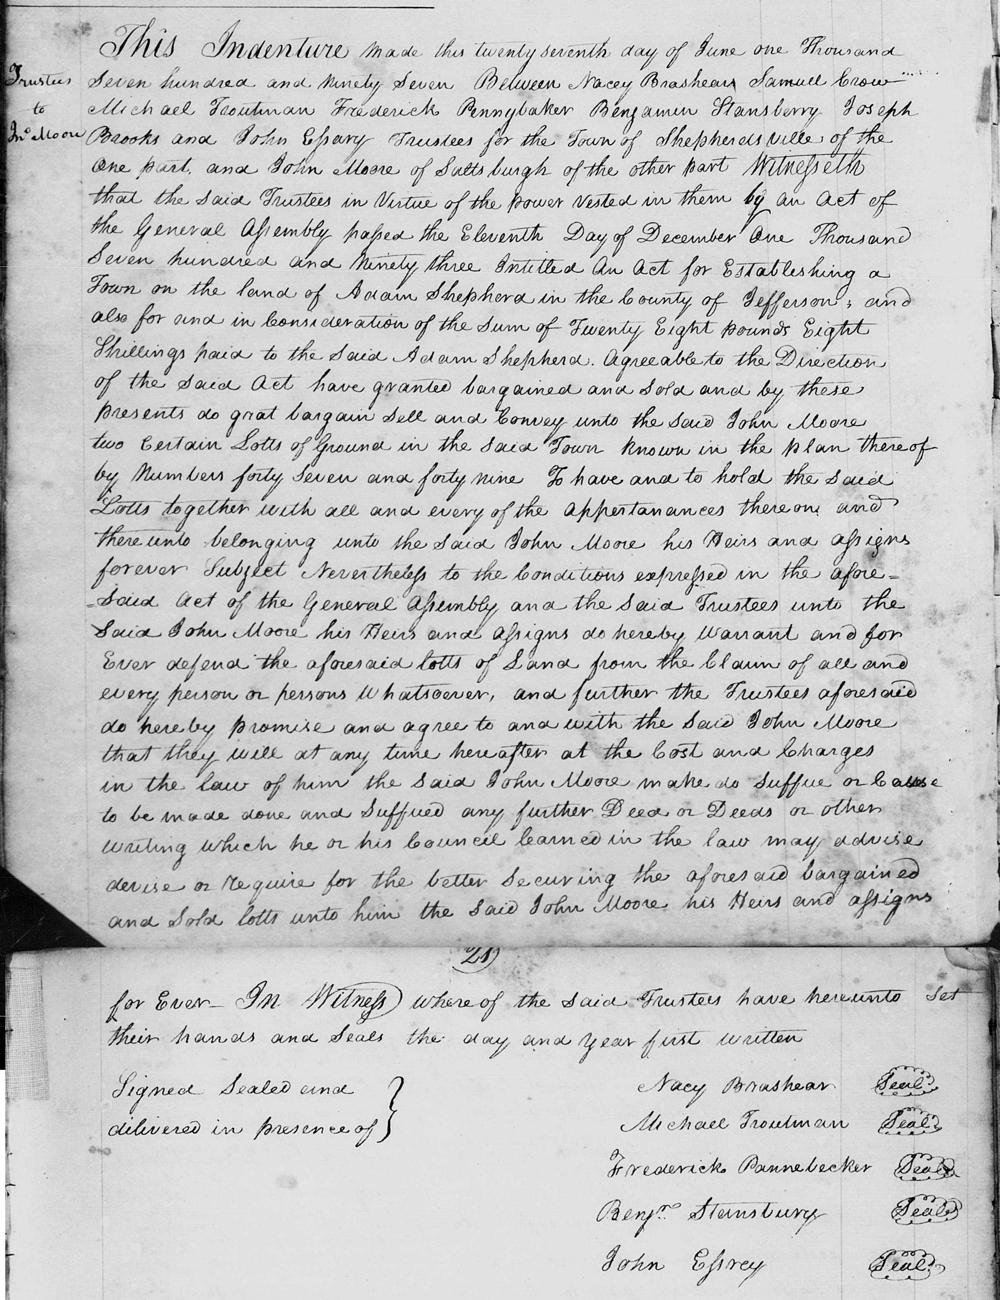 This Indenture made this twenty seventh day of June one Thousand
Seven hundred and Ninety Seven Between Nacey Brashears Samuel Crow
Trustees
to
Jno Moore
Michael Troutman Frederick Pennybaker Benjamin Stansberry Joseph
Brooks and John Essary Trustees for the Town of Shepherdsville of the
one part, and John Moore of Saltsburgh of the other part Witnesseth
that the said Trustees in Virtue of the power vested in them by an Act of
the General Assembly passed the Eleventh Day of December One Thousand
Seven hundred and Ninety three Intitled An Act for Establishing a
Town on the land of Adam Shepherd in the County of Jefferson; and
also for and in Consideration of the Sum of Twenty Eight pounds Eight
Shillings paid to the Said Adam Shepherd. Agreeable to the Direction
of the Said Act have granted bargained and Sold and by these
presents do grat bargain Sell and Convey unto the Said John Moore
two Certain Lotts of Ground in the Said Town known in the plan thereof
by Numbers forty Seven and forty nine To have and to hold the Said
Lotts together with all and every of the appertanances thereon and
there unto belonging unto the Said John Moore his Heirs and assigns
forever Subject Nevertheless to the Conditions expressed in the afore=
=Said Act of the General Assembly and the Said Trustees unto the
Said John Moore his Heirs and assigns do hereby Warrant and for
Ever defend the aforesaid lotts of Land from the Claim of all and
every person or persons Whatsoever, and further the Trustees aforesaid
do hereby promise and agree to and with the Said John Moore
that they will at any time hereafter at the Cost and Charges
in the law of him the Said John Moore make do Suffue or Cause
to be made done and Suffued any further Deed or Deeds or other
writing which he or his Council learned in the law may advise
devise or require for the better Securing the aforesaid bargained
and Sold lotts unto him the Said John Moore his Heirs and assigns
21)
for Ever- In Witness where of the Said Trustees have hereunto Set
their hands and Seals the day and year first written
Signed Sealed and
delivered in presence of }
Nacy Brashear Seal
Michael Troutman Seal
Frederick Pannebecker Seal
Benjn Stansbury Seal
John Essrey Seal